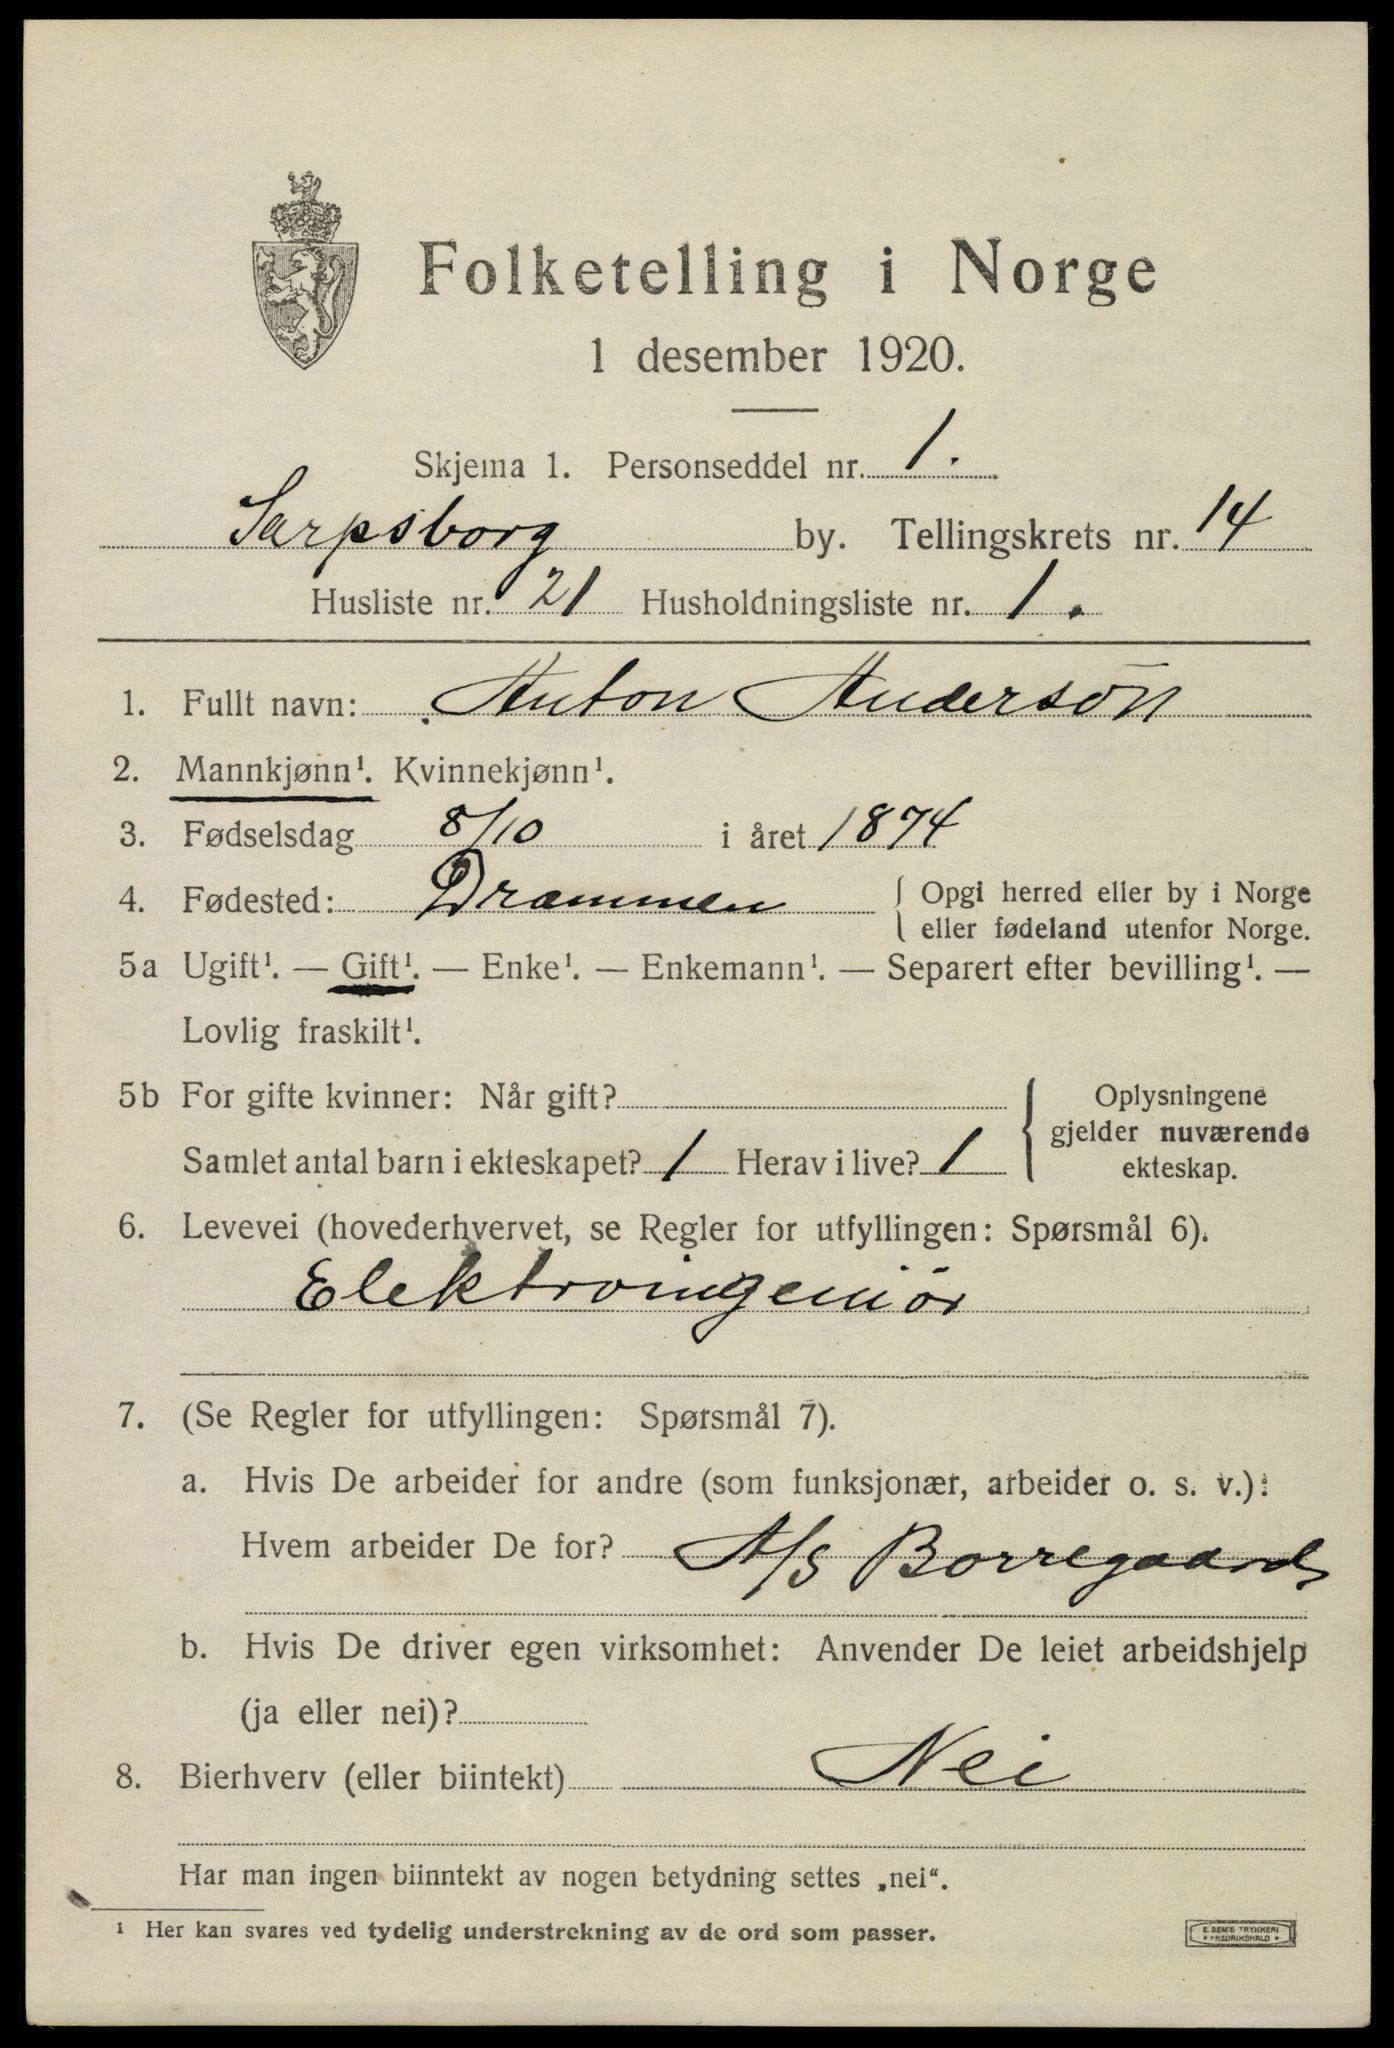 Folketelling i Norge
1 desember 1920.
Skjema 1. Personseddel nr. 1.
Sarpsborg by. Tellingskrets nr. 14
Husliste nr. 21 Husholdningsliste nr. 1.
1. Fullt navn: Anton Anderson
2. Mannkjønn¹. Kvinnekjønn¹.
3. Fødselsdag 8/10 i året 1874
4. Fødested: Drammen { Opgi herred eller by i Norge
eller fødeland utenfor Norge.
5a Ugift¹. — Gift¹. — Enke¹. — Enkemann¹. — Separert efter bevilling¹. —
Lovlig fraskilt¹.
5b For gifte kvinner: Når gift? { Oplysningene
gjelder nuværende
Samlet antal barn i ekteskapet? 1 Herav i live? 1
ekteskap.
6. Levevei (hovederhvervet, se Regler for utfyllingen: Spørsmål 6).
Elektroingeniør
7. (Se Regler for utfyllingen: Spørsmål 7).
a. Hvis De arbeider for andre (som funksjonær, arbeider o. s. v.):
Hvem arbeider De for? A/S Borregaard
b. Hvis De driver egen virksomhet: Anvender De leiet arbeidshjelp
(ja eller nei)?
8. Bierhverv (eller biintekt) Nei
Har man ingen biinntekt av nogen betydning settes „nei“.
¹ Her kan svares ved tydelig understrekning av de ord som passer.
E. SEM'S TRYKKERI
* FREDRIKSHALD *